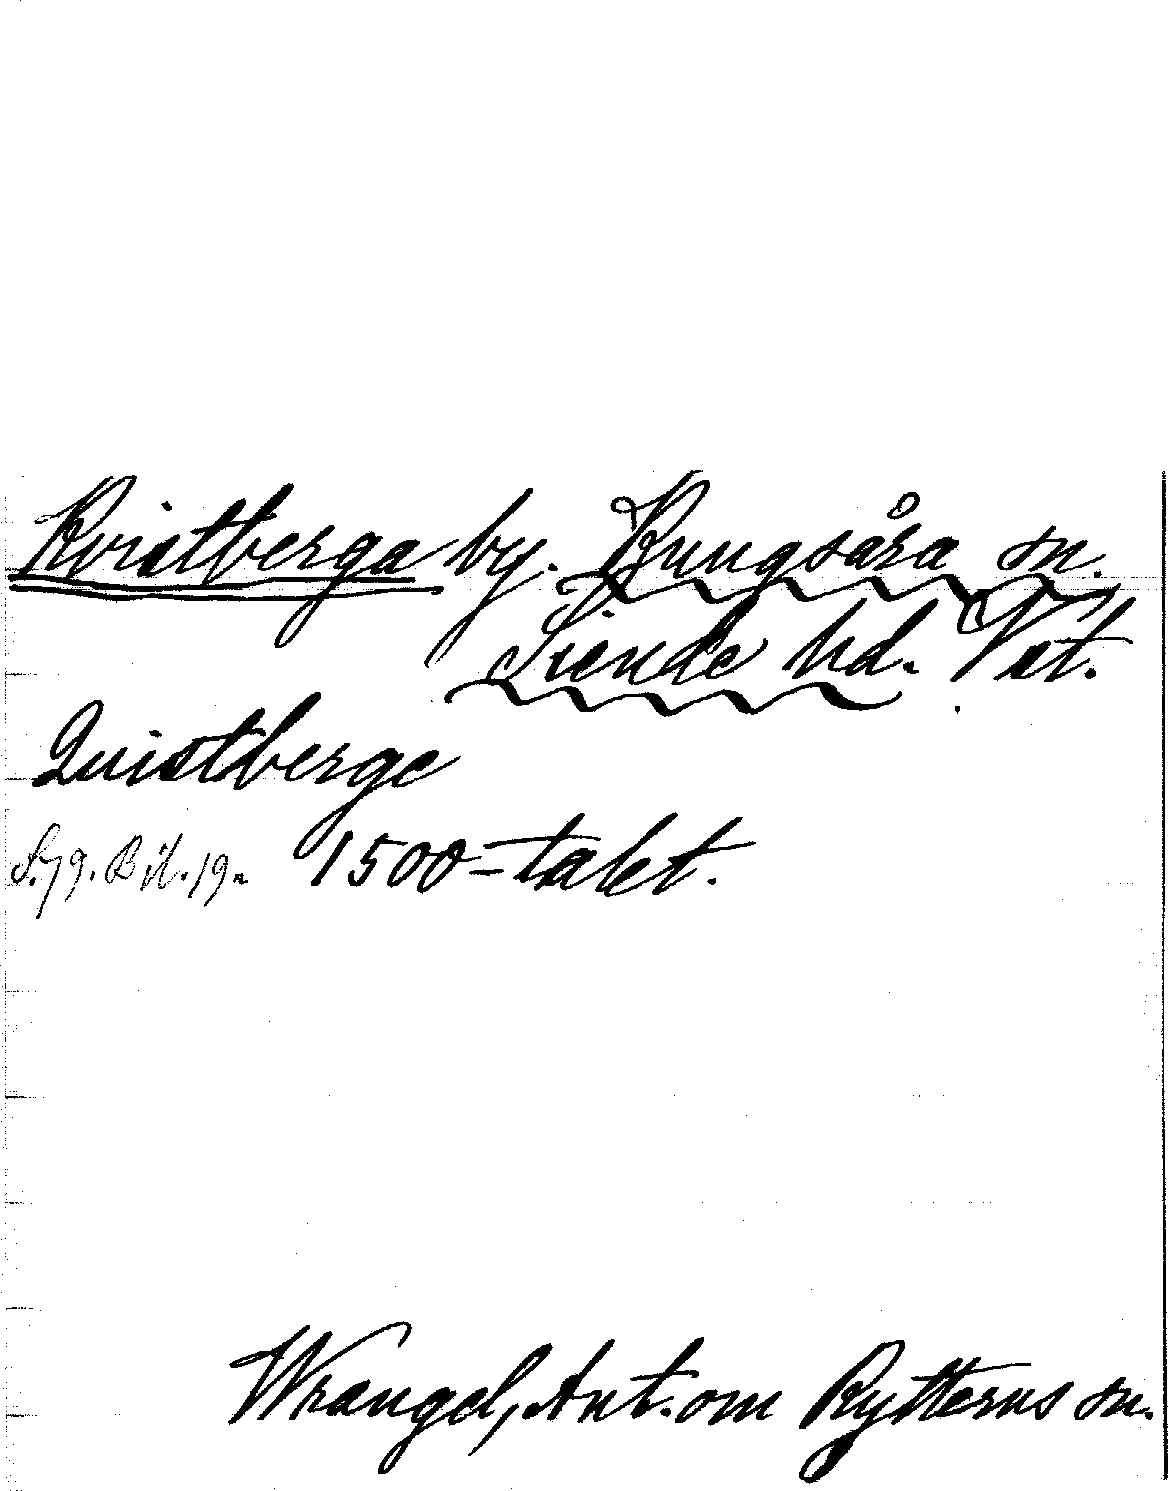 Kvistberga by. Kungsåra sn.
Siende hd. Vst.
Quistberge
S. 79. Bil. 19. 1500-talet.
Wrangel, Ant. om Rytterns sn.